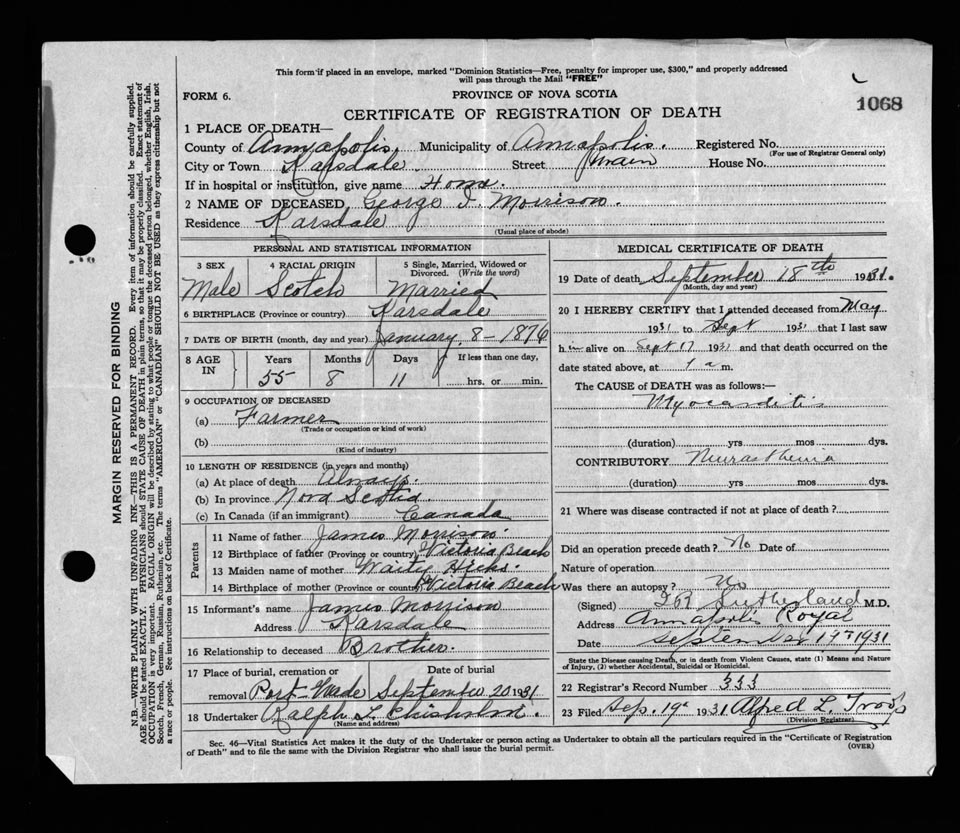 This form if placed in an envelope, marked "Dominion Statistics—Free, penalty for improper use, $300," and properly addressed
will pass through the Mail "FREE"
FORM 6.
PROVINCE OF NOVA SCOTIA
1068
CERTIFICATE OF REGISTRATION OF DEATH
1 PLACE OF DEATH—
County of Annapolis, Municipality of Annapolis. Registered No.
(For use of Registrar General only)
City or Town Karsdale Street Main House No.
If in hospital or institution, give name Home.
2 NAME OF DECEASED George I. Morrison.
Residence Karsdale
(Usual place of abode)
PERSONAL AND STATISTICAL INFORMATION
3 SEX 4 RACIAL ORIGIN 5 Single, Married, Widowed or
Divorced. (Write the word)
Male Scotch Married
6 BIRTHPLACE (Province or country) Karsdale
7 DATE OF BIRTH (month, day and year) January, 8-1876
8 AGE IN Years Months Days If less than one day,
55 8 11 hrs. or min.
9 OCCUPATION OF DECEASED
(a) Farmer
(Trade or occupation or kind of work)
(b)
(Kind of industry)
10 LENGTH OF RESIDENCE (in years and months)
(a) At place of death Always.
(b) In province Nova Scotia.
(c) In Canada (if an immigrant) Canada
Parents
11 Name of father James Morrison.
12 Birthplace of father (Province or country) Victoria Beach
13 Maiden name of mother Waity Hicks.
14 Birthplace of mother (Province or country) Victoria Beach
15 Informant's name James Morrison
Address Karsdale
16 Relationship to deceased Brother.
17 Place of burial, cremation or Date of burial
removal Port-Wade September 20 1931
18 Undertaker Ralph L. Chisholm.
(Name and address)
MEDICAL CERTIFICATE OF DEATH
19 Date of death September 18th 1931.
(Month, day and year)
20 I HEREBY CERTIFY that I attended deceased from May
1931 to Sept 1931 that I last saw
him alive on Sept 17 1931 and that death occurred on the
date stated above, at 1 a m.
The CAUSE of DEATH was as follows:—
Myocarditis
(duration) yrs mos dys.
CONTRIBUTORY Neurasthenia
(duration) yrs mos dys.
21 Where was disease contracted if not at place of death?
Did an operation precede death? No Date of
Nature of operation
Was there an autopsy? No
(Signed) Sutherland M.D.
Address Annapolis Royal
Date September 19 1931
State the Disease causing Death, or in death from Violent Causes, state (1) Means and Nature
of Injury, (2) whether Accidental, Suicidal or Homicidal.
22 Registrar's Record Number 333
23 Filed Sep. 19 1931 Alfred L.
(Division Registrar)
Sec. 46—Vital Statistics Act makes it the duty of the Undertaker or person acting as Undertaker to obtain all the particulars required in the "Certificate of Registration
of Death" and to file the same with the Division Registrar who shall issue the burial permit.
(OVER)
MARGIN RESERVED FOR BINDING
N.B.—WRITE PLAINLY WITH UNFADING INK—THIS IS A PERMANENT RECORD. Every item of information should be carefully supplied.
AGE should be stated EXACTLY. PHYSICIANS should STATE CAUSE OF DEATH in plain terms, so that it may be properly classified. Exact statement of
OCCUPATION is very important. RACIAL ORIGIN will be described by stating to what people or tongue the deceased person belonged, whether English, Irish,
Scotch, French, German, Russian, Ruthenian, etc. The terms "AMERICAN" or "CANADIAN" SHOULD NOT BE USED as they express citizenship but not
a race or people. See instructions on back of Certificate.